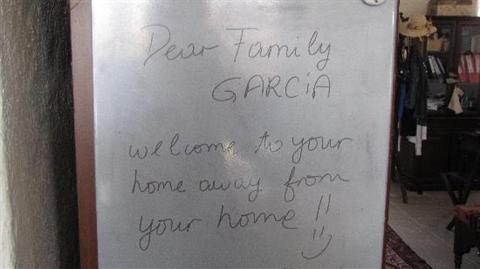 Dear Family
GARCiA
welcome to your
home away from
your home !!